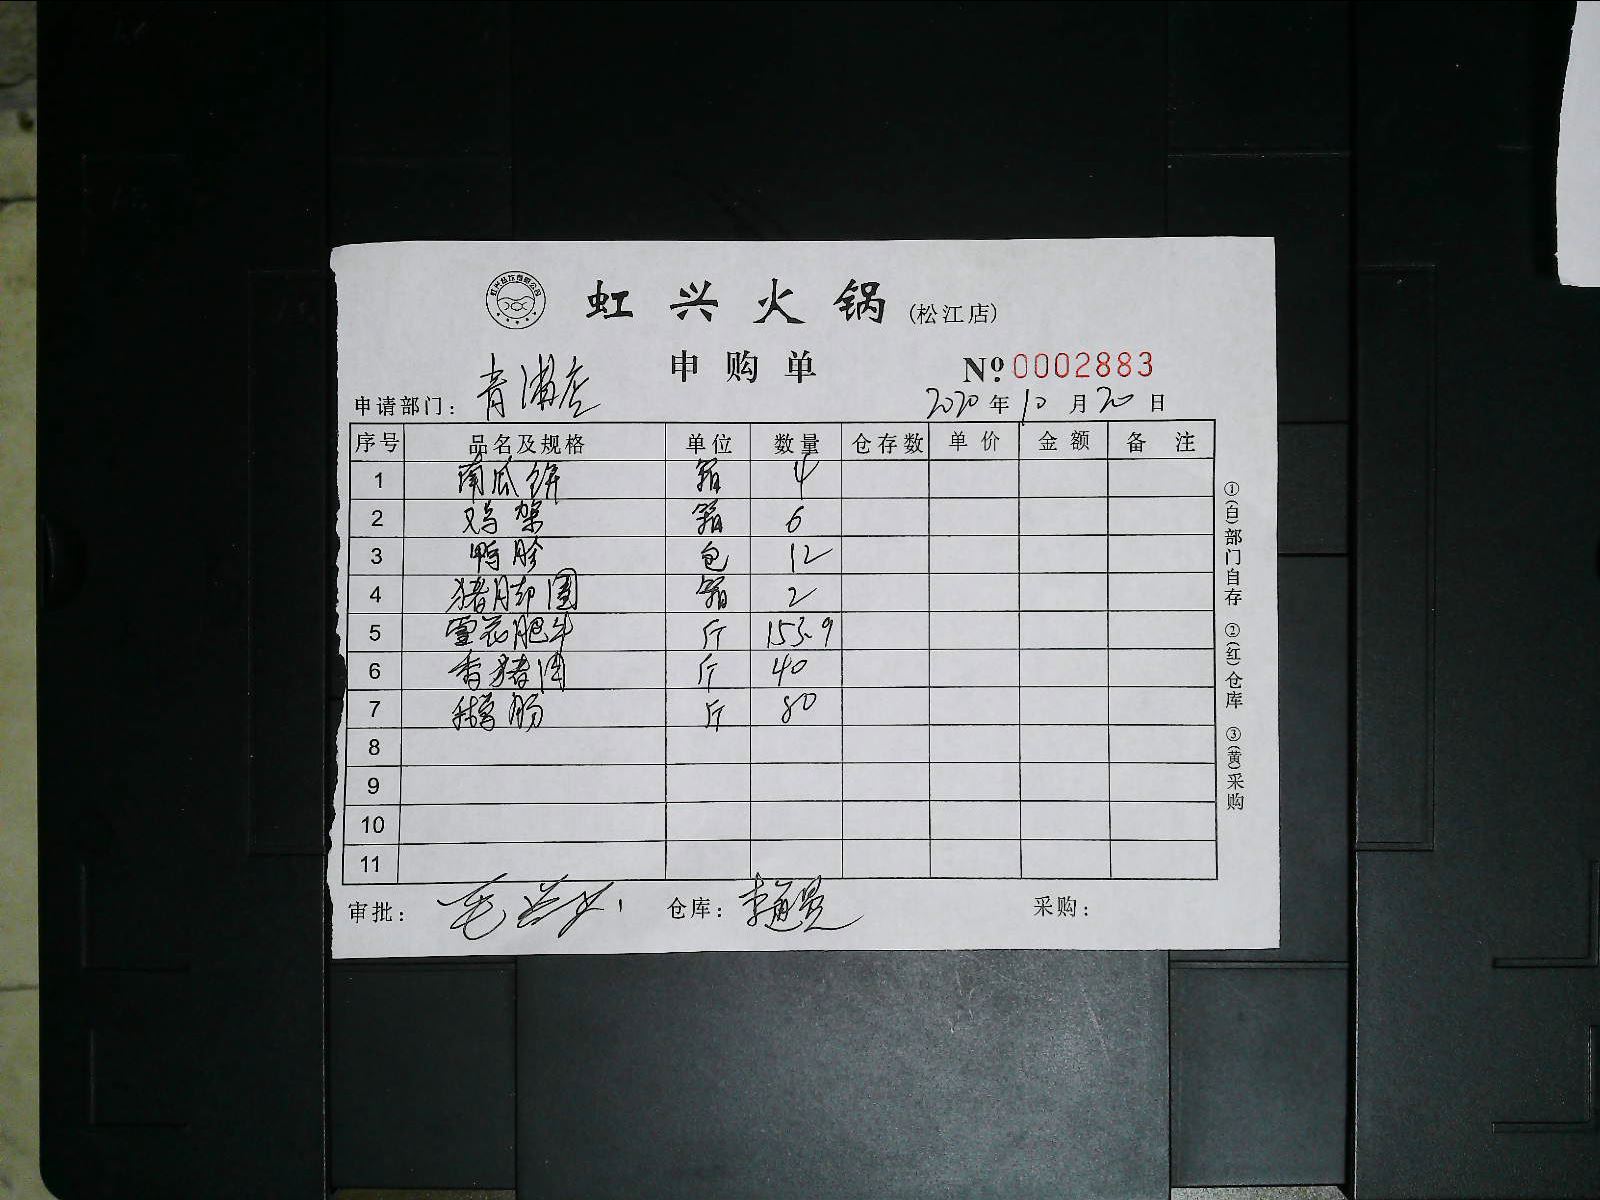 虹兴火锅(松江店)
申购单 № 0002883
申请部门: 青浦店 2020年10月20日
序号 品名及规格 单位 数量 仓存数 单价 金额 备注
1 南瓜饼 箱 4
2 鸡架 箱 6
3 鸭胗 包 12
4 猪脚圈 箱 2
5 雪花肥牛 斤 153.9
6 香猪肉 斤 40
7 鹅肠 斤 80
8
9
10
11
审批: 仓库: 采购:
①(白)部门自存 ②(红)仓库 ③(黄)采购